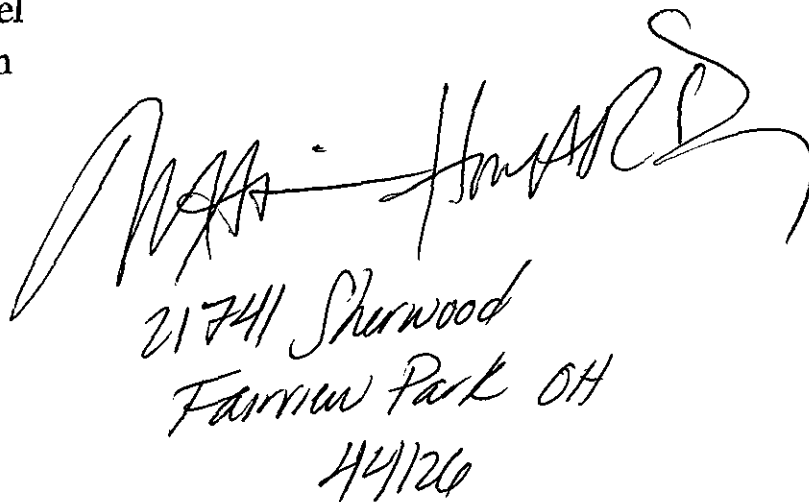 el
n
Howard
21741 Sherwood
Fairview Park OH
44126